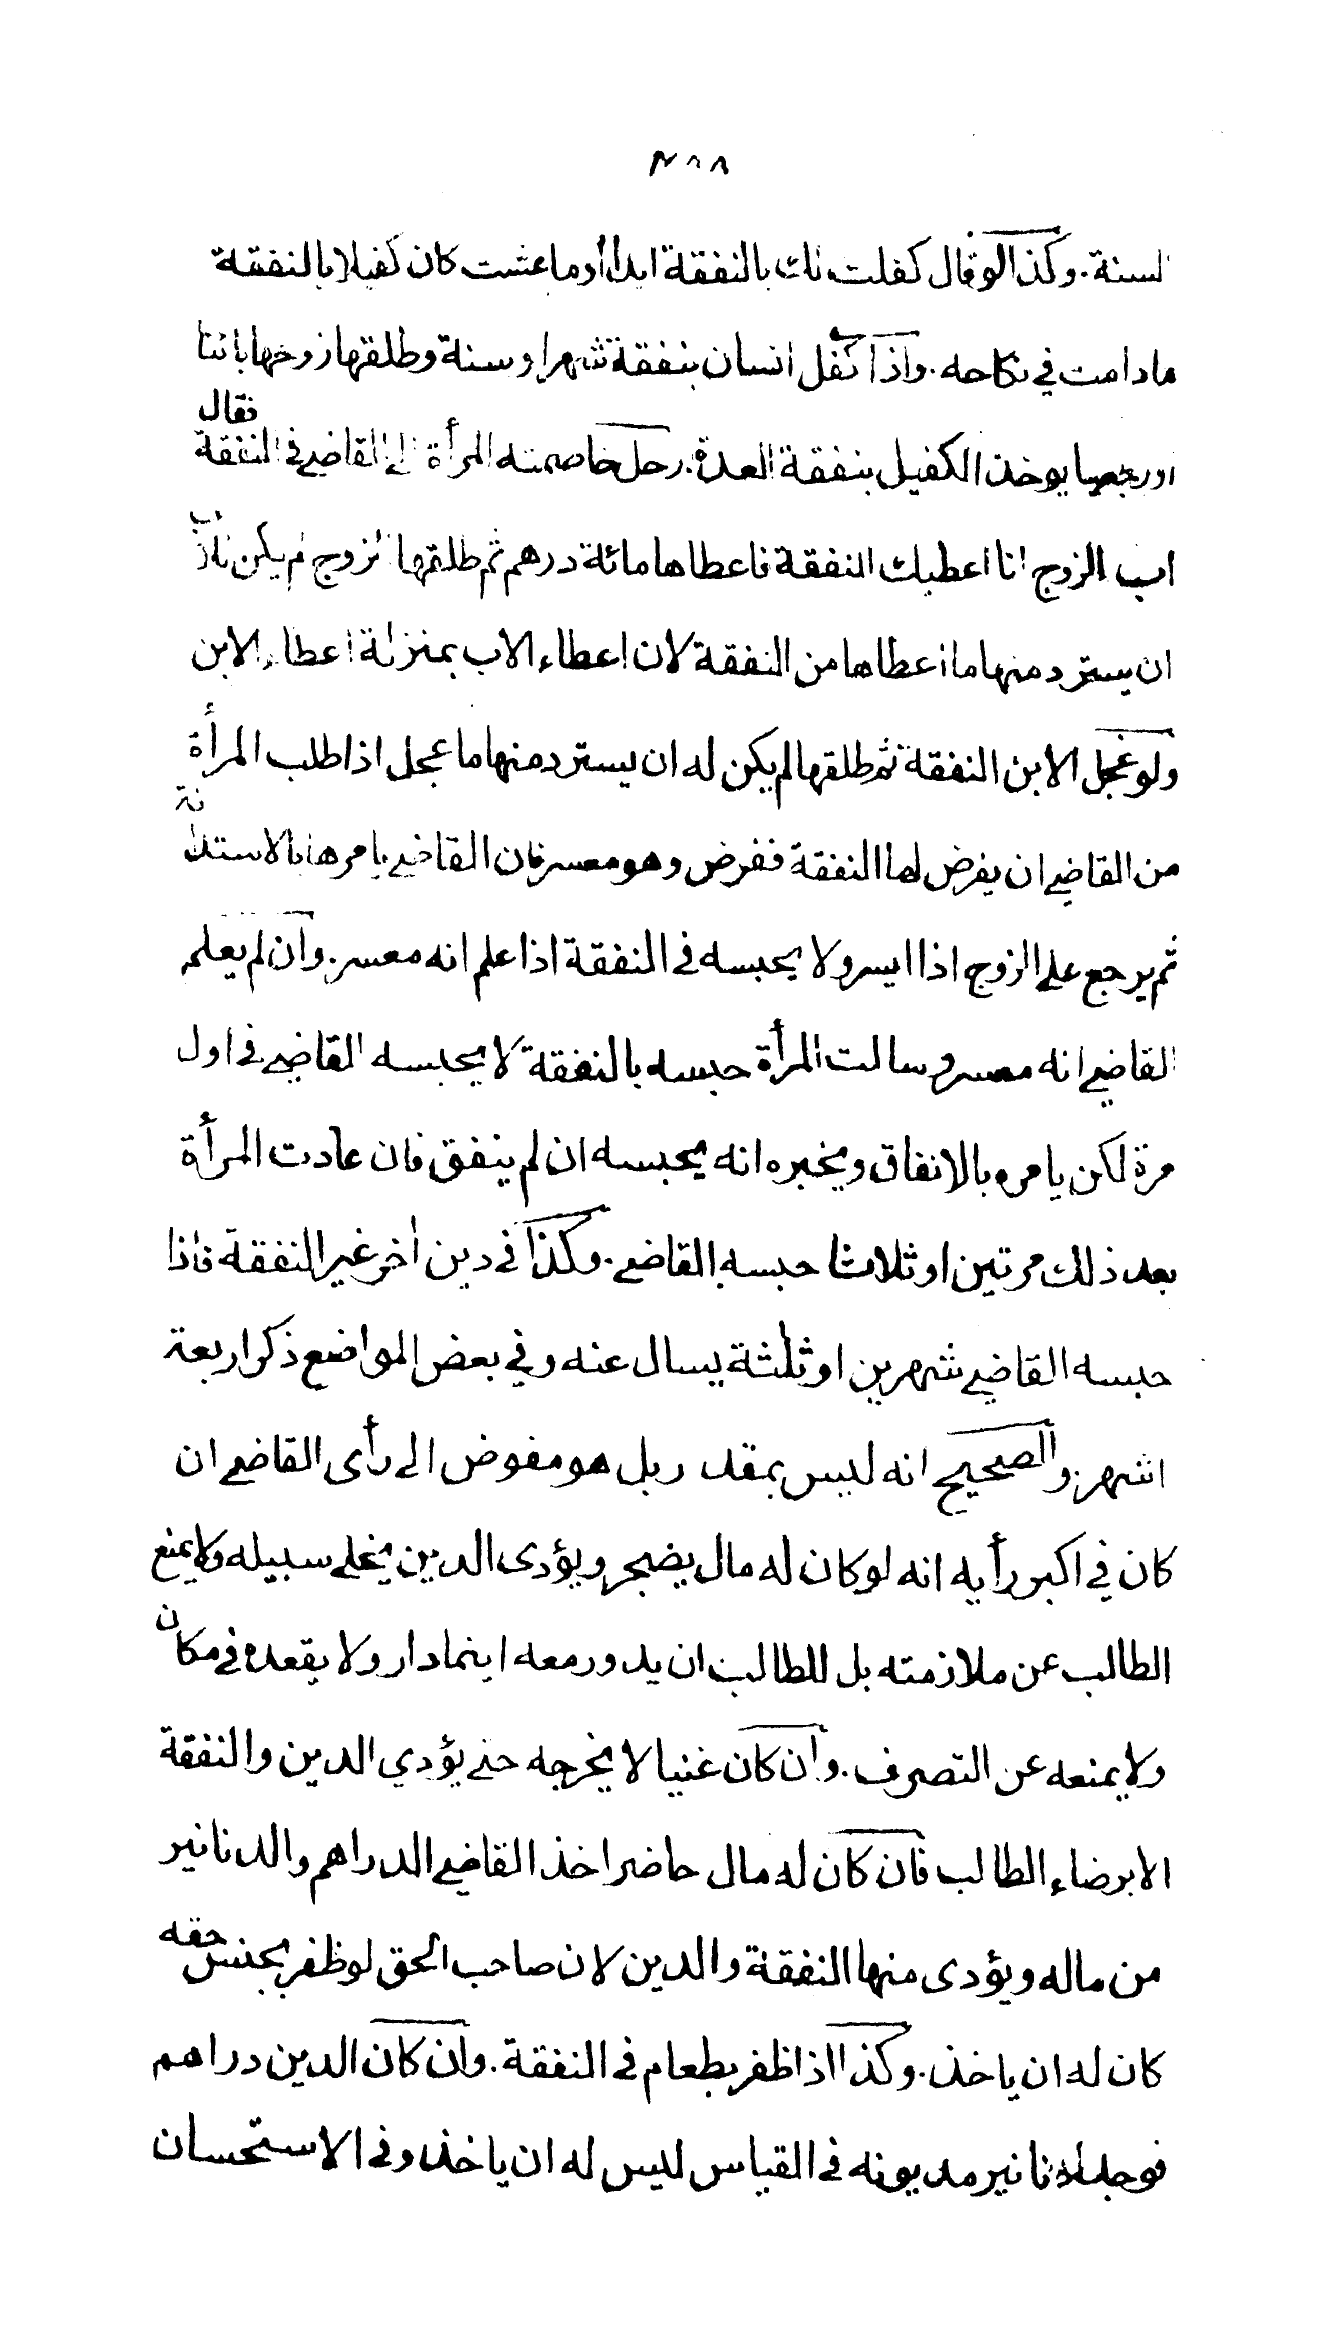 ٣٨٨
لسنة. وكذا لو قال كفلت لك بالنفقة ابدا او ما عشت كان كفيلا بالنفقة
ما دامت في نكاحه. واذا كفل انسان بنفقة شهر او سنة وطلقها زوجها بائنا
او رجعيا يوخذ الكفيل بنفقة العدة. رجل خاصمته المرأة الى القاضي في النفقة فقال
اب الزوج انا اعطيك النفقة فاعطاها مائة درهم ثم طلقها الزوج لم يكن للاب
ان يسترد منها ما اعطاها من النفقة لان اعطاء الاب بمنزلة اعطاء الابن
ولو عجل الابن النفقة ثم طلقها لم يكن له ان يسترد منها ما عجل اذا طلب المرأة
من القاضي ان يفرض لها النفقة ففرض وهو معسر فان القاضي يامرها بالاستدانة
ثم يرجع على الزوج اذا ايسر ولا يحبسه في النفقة اذا علم انه معسر. وان لم يعلم
القاضي انه معسر وسالت المرأة حبسه بالنفقة لا يحبسه القاضي في اول
مرة لكن يامره بالانفاق ويخبره انه يحبسه ان لم ينفق فان عادت المرأة
بعد ذلك مرتين او ثلاثا حبسه القاضي. وكذا في دين اخر غير النفقة فاذا
حبسه القاضي شهرين او ثلثة يسال عنه وفي بعض المواضع ذكر اربعة
اشهر. والصحيح انه ليس بمقدر بل هو مفوض الى رأى القاضي ان
كان في اكبر رأيه انه لو كان له مال يضجر ويؤدى الدين يخلى سبيله ولا يمنع
الطالب عن ملازمته بل للطالب ان يدور معه اينما دار ولا يقعده في مكان
ولا يمنعه عن التصرف. وان كان غنيا لا يخرجه حتى يؤدي الدين والنفقة
الا برضاء الطالب فان كان له مال حاضر اخذ القاضي الدراهم والدنانير
من ماله ويؤدى منها النفقة والدين لان صاحب الحق لو ظفر بجنس حقه
كان له ان ياخذ. وكذا اذا ظفر بطعام في النفقة. وان كان الدين دراهم
فوجد دنانير مديونه في القياس ليس له ان ياخذ وفي الاستحسان